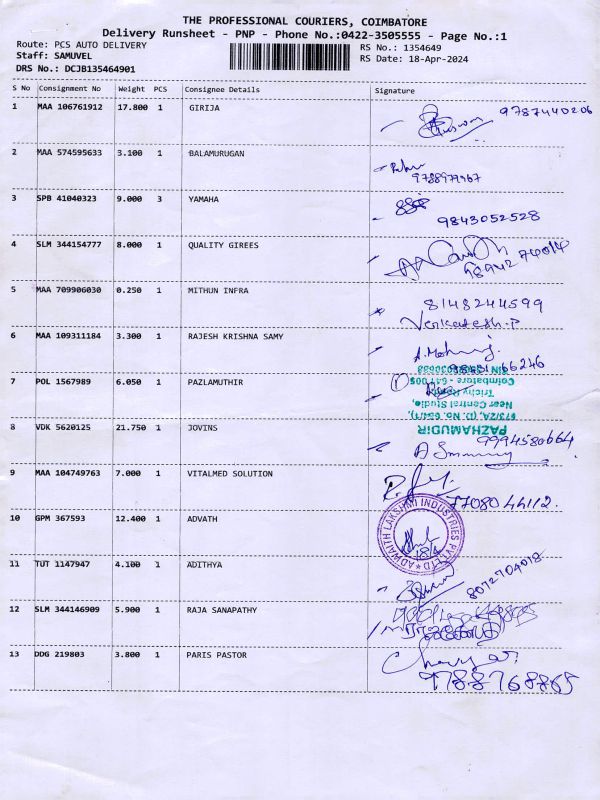 THE PROFESSIONAL COURIERS, COIMBATORE
Delivery Runsheet - PNP - Phone No.:0422-3505555 - Page No.:1
Route: PCS AUTO DELIVERY
Staff: SAMUVEL
DRS No.: DCJB135464901
RS No.: 1354649
RS Date: 18-Apr-2024
S No Consignment No Weight PCS Consignee Details Signature
1 MAA 106761912 17.800 1 GIRIJA 9787440206
2 MAA 574595633 3.100 1 BALAMURUGAN
3 SPB 41040323 9.000 3 YAMAHA 9843052528
4 SLM 344154777 8.000 1 QUALITY GIREES
5 MAA 709906030 0.250 1 MITHUN INFRA 8148244599
Venkatesh.P
6 MAA 109311184 3.300 1 RAJESH KRISHNA SAMY
7 POL 1567989 6.050 1 PAZLAMUTHIR
PAZHAMUDIR
Near Central Studio,
Trichy Road,
Coimbatore - 641 005
8 VDK 5620125 21.750 1 JOVINS 9994580664
9 MAA 104749763 7.000 1 VITALMED SOLUTION 7708044112.
10 GPM 367593 12.400 1 ADVATH
ADWAITH LAKSHMI INDUSTRIES PVT LTD
18/4
11 TUT 1147947 4.100 1 ADITHYA 8072704018
12 SLM 344146909 5.900 1 RAJA SANAPATHY
13 DDG 219803 3.800 1 PARIS PASTOR
9788768865